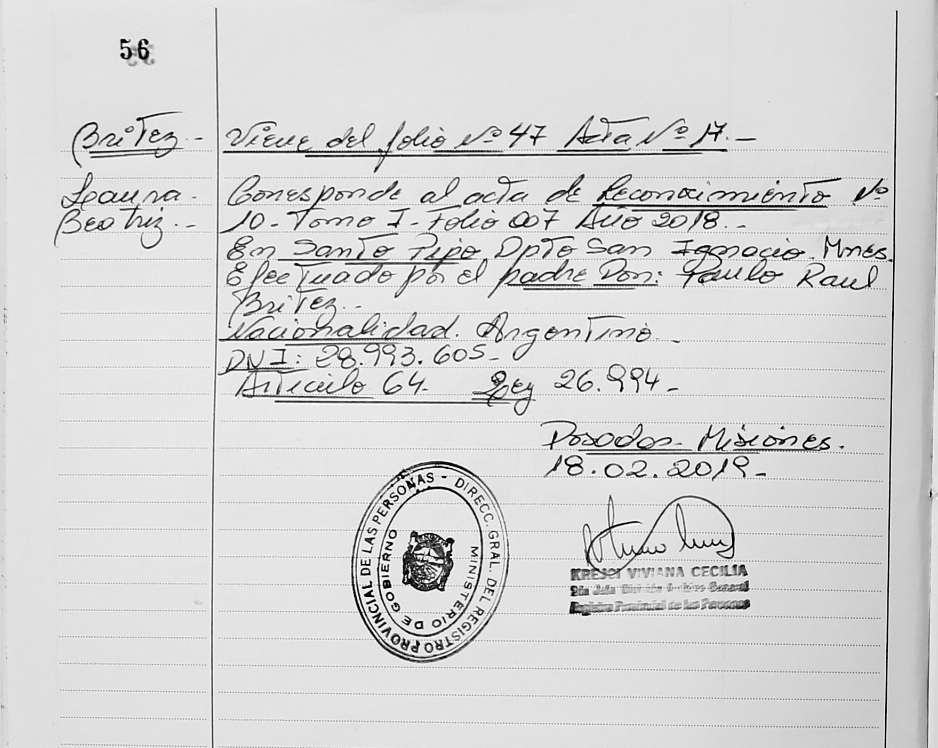 56
Britez.- Viene del folio Nº 47 Acta Nº 17.-
Laura. Corresponde al acta de Reconocimiento Nº
Beatriz.- 10- Tomo I- Folio 007 Año 2018.-
En Santo Pipo, Dpto San Ignacio. Mnes.
Efectuado por el padre Don: Paulo Raul
Britez.-
Nacionalidad. Argentino.-
DNI: 28.993.605-
Articulo 64- Ley 26.994-
Posadas- Misiones.
18.02.2019-
DIRECC. GRAL. DEL REGISTRO PROVINCIAL DE LAS PERSONAS -
MINISTERIO DE GOBIERNO
VIVIANA CECILIA
Registro Provincial de las Personas